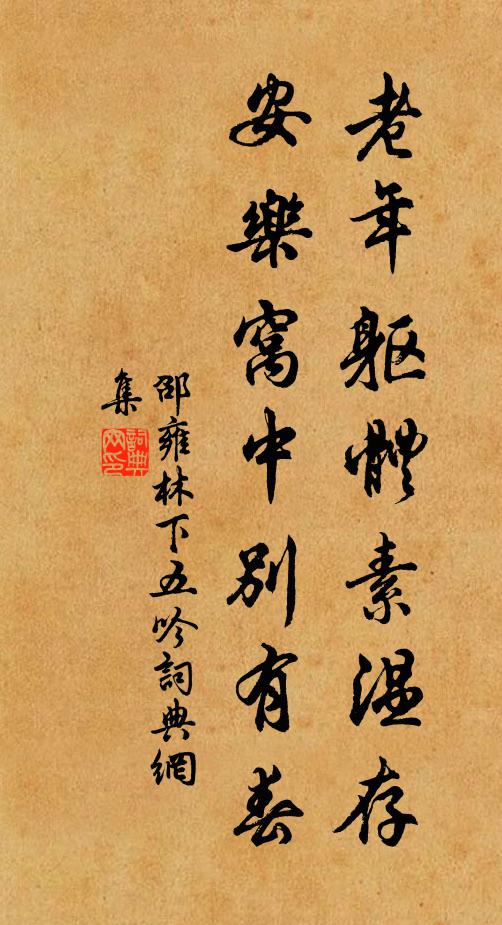 老年軀體素温存
安樂窩中別有春
邵雍林下五吟詞典網
集
詞典
网印